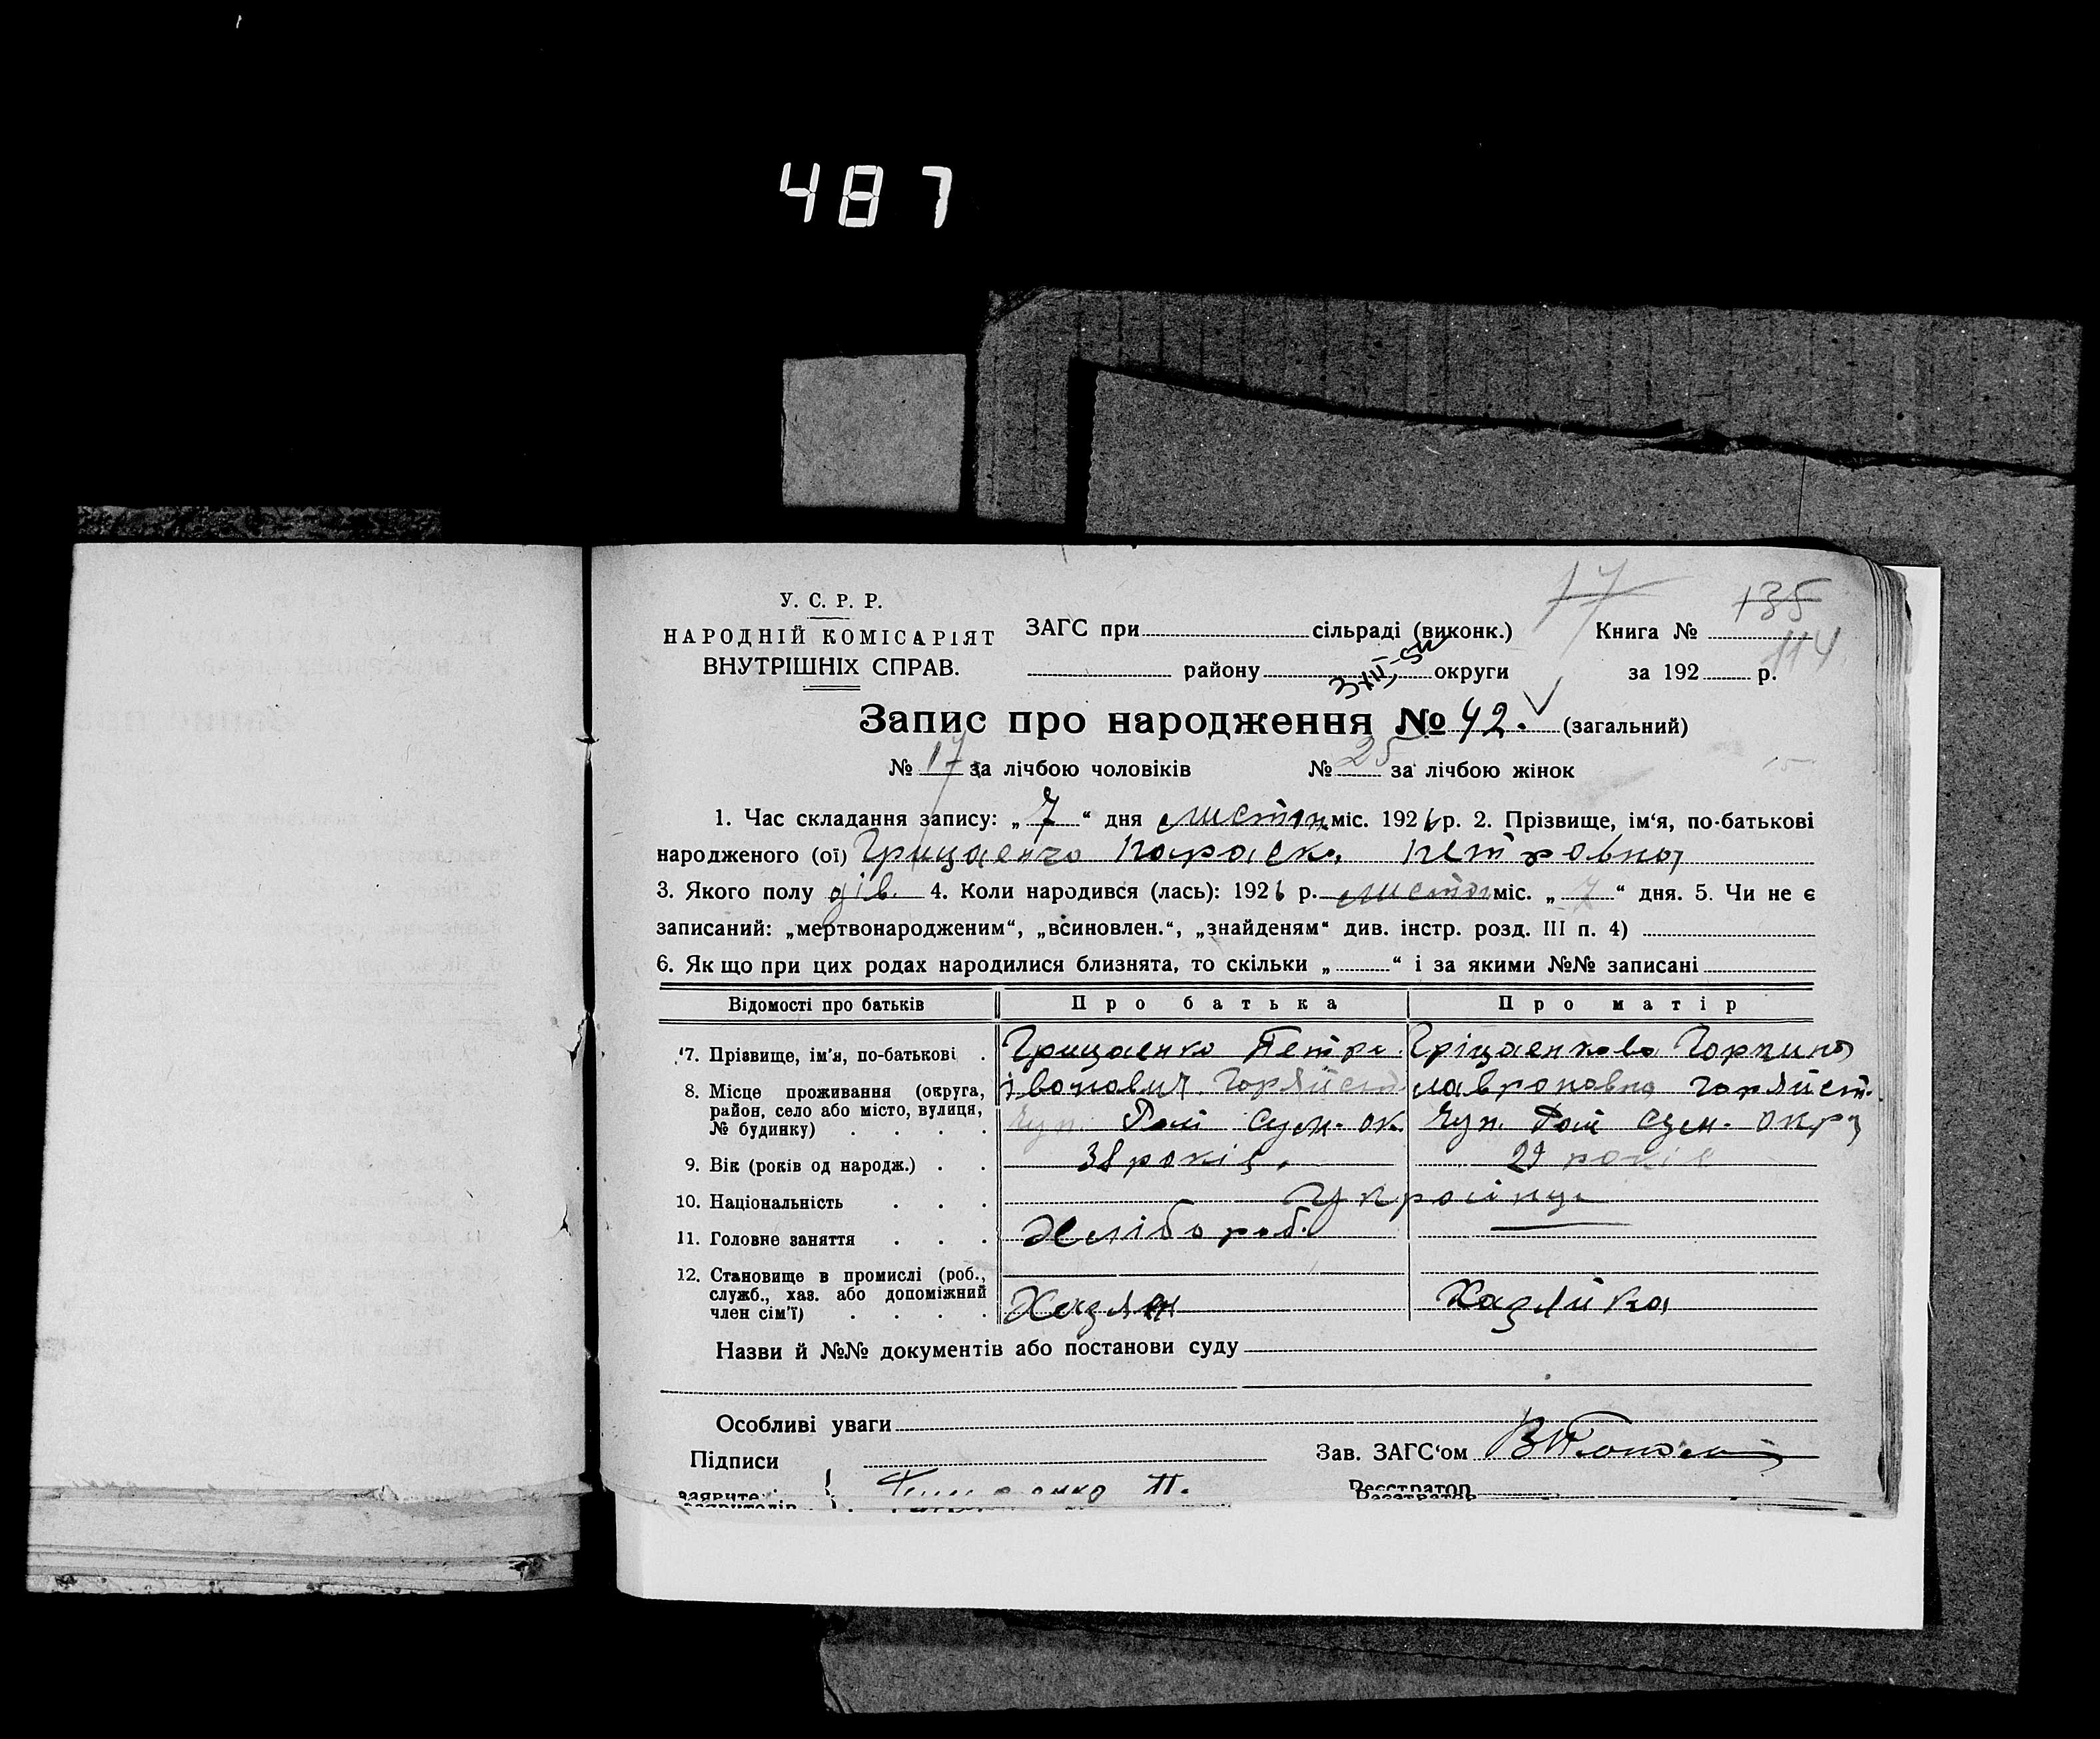 487
17
135
У. С. Р. Р.
НАРОДНІЙ КОМІСАРІЯТ
ВНУТРІШНІХ СПРАВ.
ЗАГС при сільраді (виконк.)
Книга №
114
району округи
за 192 р.
Запис про народження № 42. (загальний)
№ 17 за лічбою чоловіків № 25 за лічбою жінок
1. Час складання запису: „7“ дня листоп міс. 1926 р. 2. Прізвище, ім‘я, по-батькові
народженого (ої) Грицаенко Параска Петровна
3. Якого полу дів. 4. Коли народився (лась): 1926 р. листоп міс. „7“ дня. 5. Чи не є
записаний: „мертвонародженим“, „всиновлен.“, „знайденям“ див. інстр. розд. III п. 4)
6. Як що при цих родах народилися близнята, то скільки „ “ і за якими №№ записані
Відомості про батьків Про батька Про матір
7. Прізвище, ім'я, по-батькові . Грицаенко Петро Гріцаенкова Горпина
8. Місце проживання (округа, район, село або місто, вулиця, № будинку) . . . . Івонович. Горяйст Чуп. Рай Сум. ок. Лавроновна Горяйст. Чуп. Рай Сум. окру
9. Вік (років од народж.) . . 38 років. 29 років
10. Національність . . . Украінці
11. Головне заняття . . . Хлібороб.
12. Становище в промислі (роб., служб., хаз. або допоміжний член сім'ї) . . . . Хазяін Хазяйка
Назви й №№ документів або постанови суду
Особливі уваги
Підписи
Зав. ЗАГС‘ом
заявите
П.
Реєстратор